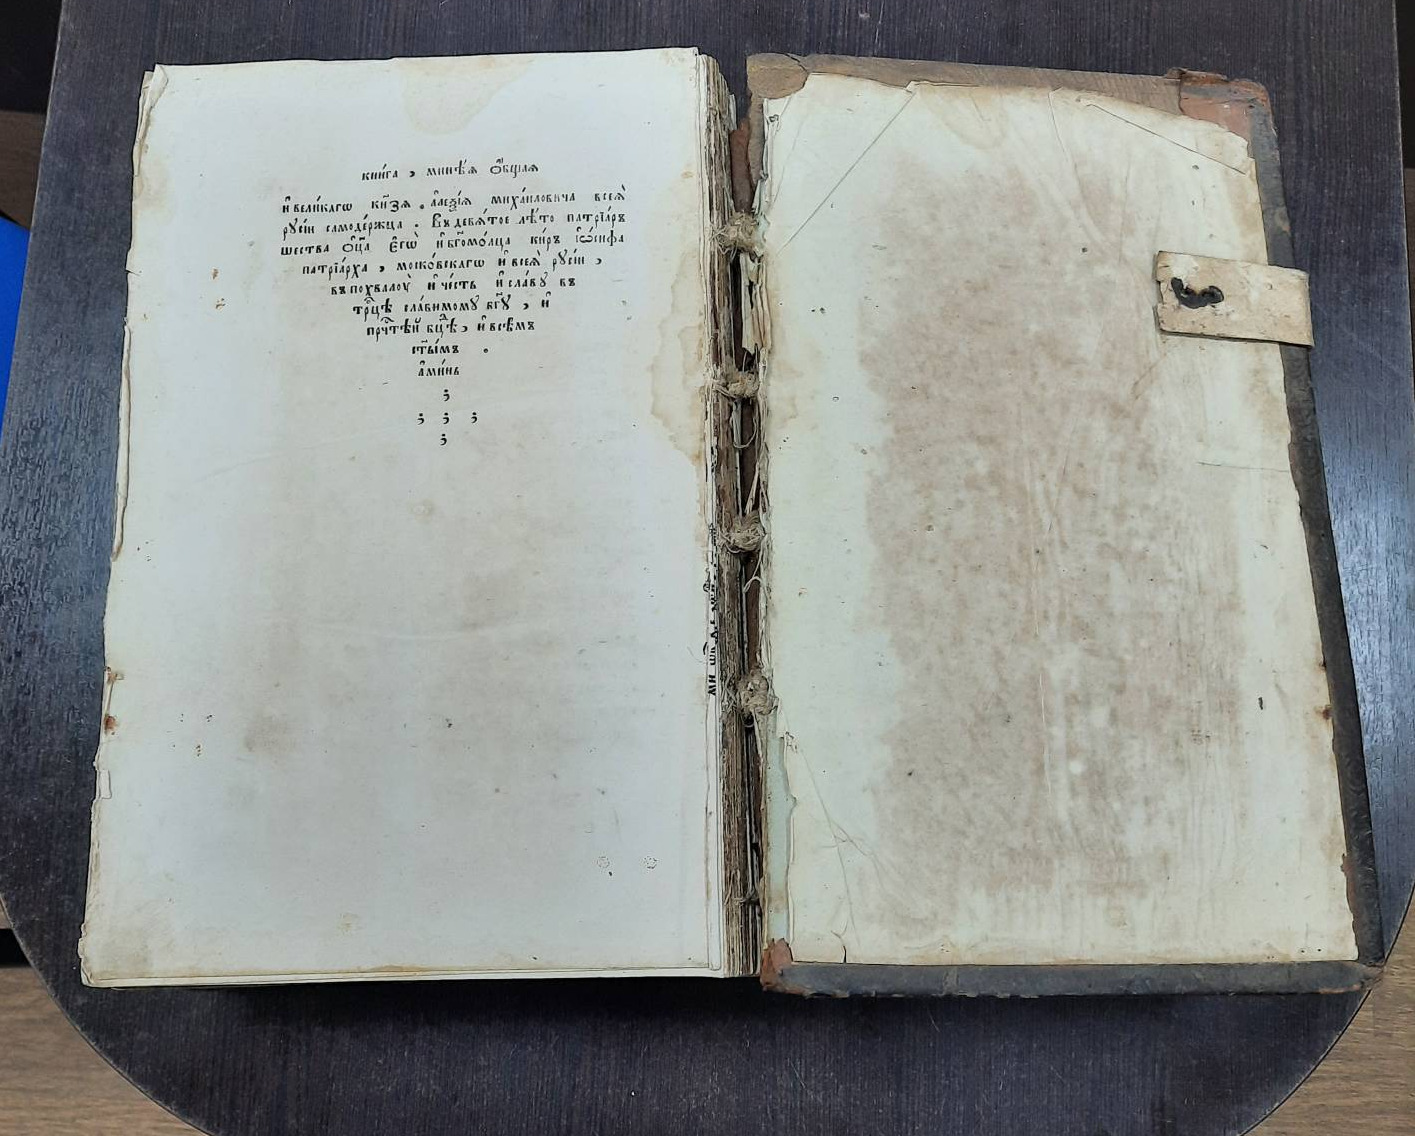 кни́га , мине́ѧ Ѻ҆́бщаѧ
и҆ вели́кагѡ кн҃зѧ . а҆леѯі́ѧ миха́иловича всеѧ̀
рꙋсі́и самоде́ржца . Въ девѧ́тое лѣ́то патрїа́р
шества ѻ҆ц҃а є҆гѡ̀ и҆ бг҃омо́лца ки́ръ і҆ѡ́сифа
патрїа́рха , моско́вскагѡ и҆ всеѧ̀ рꙋсі́и ,
въ похвалоу̀ и҆ че́сть и҆ сла́вꙋ въ
трⷪ҇цѣ сла́вимомꙋ бг҃ꙋ , и҆
прⷱ҇тѣй бцⷣѣ , и҆ всѣ́мъ
ст҃ы́мъ .
а҆ми́нь
;
; ; ;
;